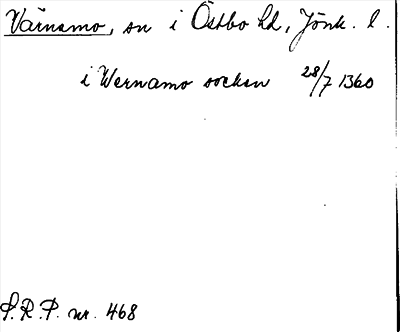 Värnamo, sn i Östbo hd, Jönk. l.
i Wernamo socken 28/7 1360
S.R.P. nr. 468